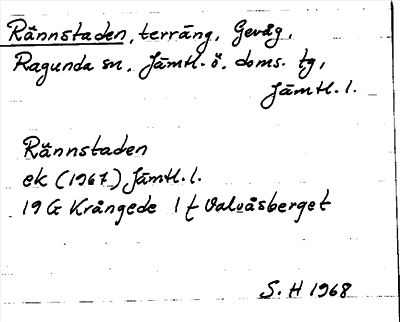 Rännstaden, terräng, Gevåg,
Ragunda sn. Jämtl. ö. doms. tg,
Jämtl. l.
Rännstaden
ek (1967) Jämtl. l.
19 G Krångede 1 f Valvåsberget
S. H 1968